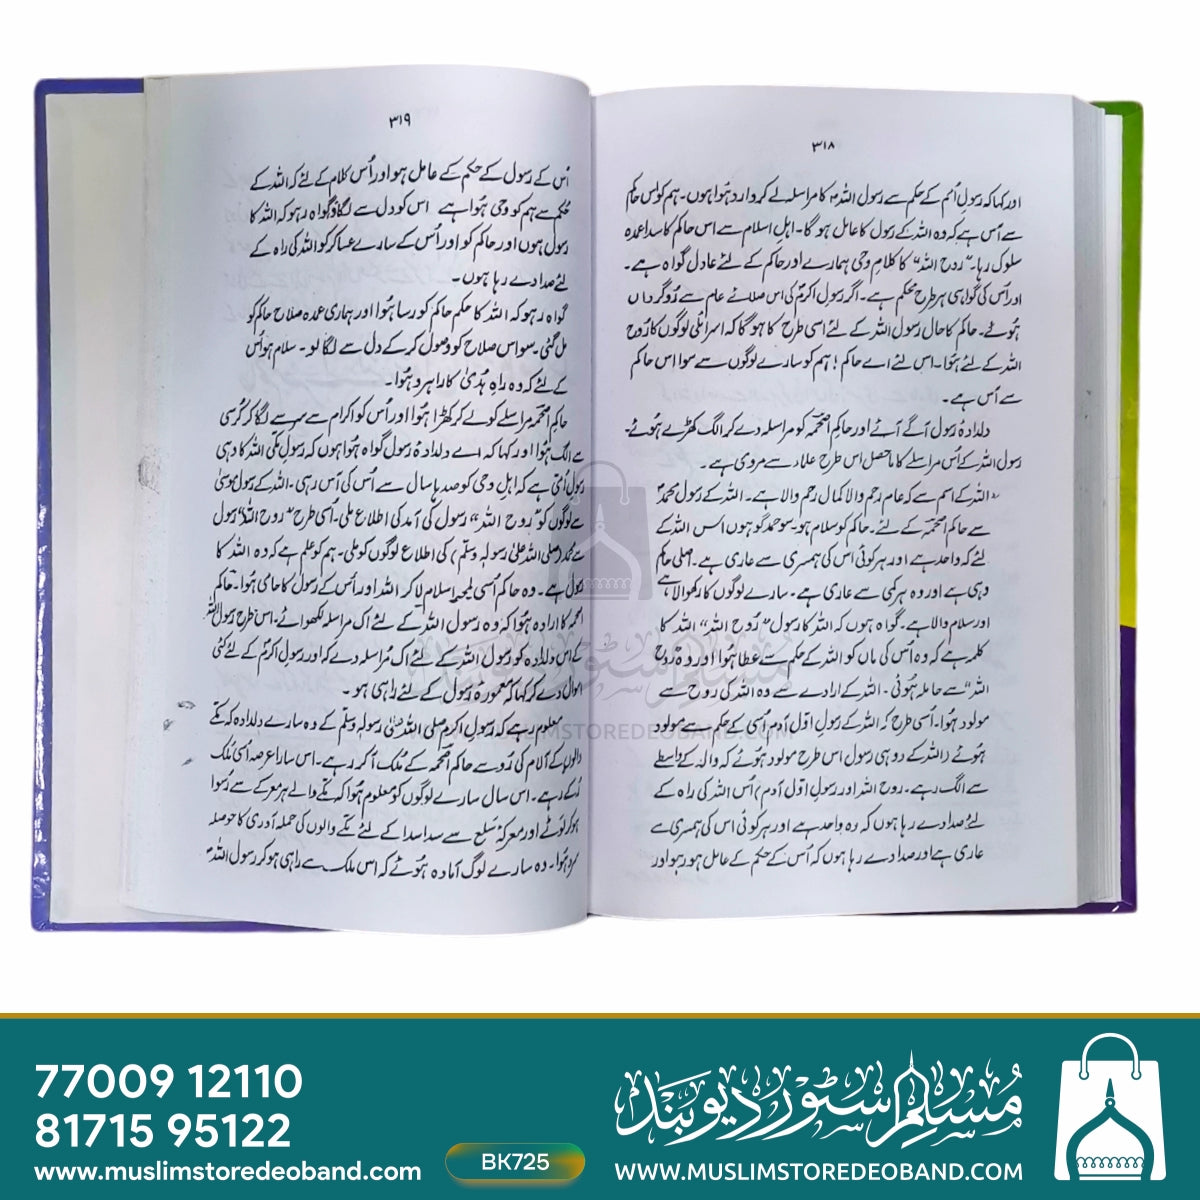 ۳۱۸
اور کہا کہ رسولِ اُمم کے حکم سے رسول اللہ کا مراسلہ لے کر وارد ہوا ہوں۔ ہم کو اس حاکم
سے اُس ہے کہ وہ اللہ کے رسول کا عامل ہوگا۔ اہلِ اسلام سے اس حاکم کا سدا عمدہ
سلوک رہا۔ "روح اللہ" کا کلام وحی ہمارے اور حاکم کے لئے عادل گواہ ہے۔
اور اُس کی گواہی ہر طرح محکم ہے۔ اگر رسولِ اکرم کی اس صلائے عام سے رُوگرداں
ہوئے۔ حاکم کا حال رسول اللہ کے لئے اسی طرح کا ہوگا کہ اسرائلی لوگوں کا رُوح
اللہ کے لئے ہوا۔ اس لئے اے حاکم! ہم کو سارے لوگوں سے سوا اس حاکم
سے اُس ہے۔
دلدادۂ رسول آگے آئے اور حاکم اصحمہ کو مراسلہ دے کر الگ کھڑے ہوئے۔
رسول اللہ کے اُس مراسلے کا ماحصل اس طرح علماء سے مروی ہے۔
"اللہ کے اسم سے کہ عام رحم والا کمال رحم والا ہے۔ اللہ کے رسول محمدؐ
سے حاکم اصحمہ کے لئے۔ حاکم کو سلام ہو۔ سو حمد گو ہوں اس اللہ کے
لئے کہ واحد ہے اور ہر کوئی اس کی ہمسری سے عاری ہے۔ اصلی حاکم
وہی ہے اور وہ ہر کمی سے عاری ہے۔ سارے لوگوں کا رکھوالا ہے
اور سلام والا ہے۔ گواہ ہوں کہ اللہ کا رسول "رُوح اللہ" اللہ کا
کلمہ ہے کہ وہ اُس کی ماں کو اللہ کے حکم سے عطا ہوا اور وہ "رُوح
اللہ" سے حاملہ ہوئی۔ اللہ کے ارادے سے وہ اللہ کی روح سے
مولود ہوا۔ اُسی طرح کہ اللہ کے رسولِ اوّل آدم اُسی کے حکم سے مولود
ہوئے (اللہ کے دو ہی رسول اس طرح مولود ہوئے کہ والد کے واسطے
سے الگ رہے۔ روح اللہ اور رسولِ اوّل آدم) اُس اللہ کی راہ کے
لئے صدا دے رہا ہوں کہ وہ واحد ہے اور ہر کوئی اس کی ہمسری سے
عاری ہے اور صدا دے رہا ہوں کہ اُس کے حکم کے عامل ہو رہو اور
۳۱۹
اُس کے رسول کے حکم کے عامل ہو اور اُس کلام کے لئے کہ اللہ کے
حکم سے ہم کو وحی ہوا ہے اس کو دل سے لگاؤ گواہ رہو کہ اللہ کا
رسول ہوں اور حاکم کو اور اُس کے سارے عساکر کو اللہ کی راہ کے
لئے صدا دے رہا ہوں۔
گواہ رہو کہ اللہ کا حکم حاکم کو رسا ہوا اور ہماری عمدہ صلاح حاکم کو
مل گئی۔ سو اس صلاح کو وصول کر کے دل سے لگا لو۔ سلام ہو اُس
کے لئے کہ وہ راہِ ہدیٰ کا راہرو ہوا۔
حاکم اصحمہ مراسلے کو لے کر کھڑا ہوا اور اُس کو اکرام سے سر سے لگا کر کرسی
سے الگ ہوا اور کہا کہ اے دلدادۂ رسول گواہ ہوں کہ رسول مکی اللہ کا وہی
رسولِ اُمی ہے کہ اہلِ وحی کو صدہا سال سے اُس کی آس رہی۔ اللہ کے رسول موسیٰ
سے لوگوں کو "روح اللہ" رسول کی آمد کی اطلاع ملی۔ اُسی طرح "روح اللہ" رسول
سے محمد (صلی اللہ علیٰ رسولہ وسلم) کی اطلاع لوگوں کو ملی۔ ہم کو علم ہے کہ وہ اللہ کا
رسول ہے۔ وہ حاکم اُسی لمحہ اسلام لا کر اللہ اور اُس کے رسول کا حامی ہوا۔ حاکم
اصحمہ کا ارادہ ہوا کہ وہ رسول اللہ کے لئے اک مراسلہ لکھوائے۔ اس طرح رسول اللہ
کے اس دلدادہ کو رسول اللہ کے لئے اک مراسلہ دے کر اور رسولِ اکرم کے لئے کئی
اموال دے کر کہا کہ معمورۂ رسول کے لئے راہی ہو۔
معلوم ہے کہ رسولِ اکرم صلی اللہ علیٰ رسولہ وسلم کے وہ سارے دلدادہ کہ مکے
والوں کے آلام کی رُو سے حاکم اصحمہ کے مُلک آ کر رہے۔ اس سارا عرصہ اُسی مُلک
رُکے رہے۔ اس سال سارے لوگوں کو معلوم ہوا کہ مکے والے ہر معرکے سے رُسوا
ہو کر لوٹے اور معرکۂ سلع سے سدا سدا کے لئے مکے والوں کی حملہ آوری کا حوصلہ
سرد ہوا۔ وہ سارے لوگ آمادہ ہوئے کہ اس ملک سے راہی ہو کر رسول اللہ
مسلم سٹور دیوبند
WWW.MUSLIMSTOREDEOBAND.COM
77009 12110
81715 95122
www.muslimstoredeoband.com
BK725
مسلم سٹور دیوبند
WWW.MUSLIMSTOREDEOBAND.COM